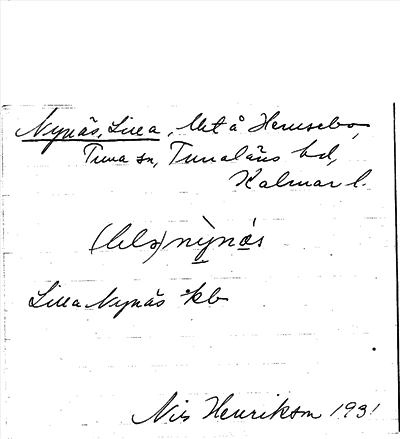 Nynäs, Lilla, Ået å Hemsebo,
Tuna sn, Tunaläns hd,
Kalmar l.
(lila) nỳnás
Lilla Nynäs kb
Nils Henrikson 1931